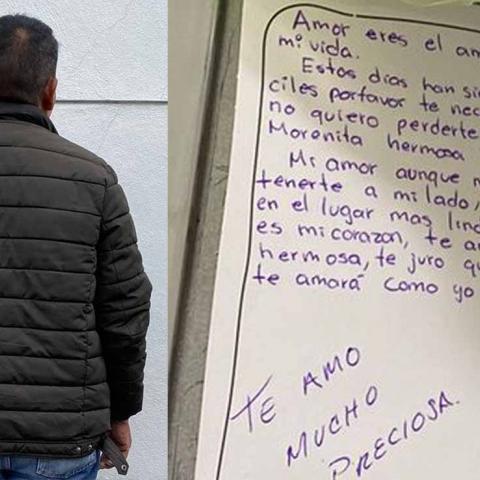 Amor eres el am
mi vida.
Estos dias han si
ciles porfavor te nec
no quiero perderte
Morenita hermosa
Mi amor aunque n
tenerte a mi lado,
en el lugar mas lind
es mi corazon, te a
hermosa, te juro qu
te amará como yo
TE AMO
MUCHO
PRECIOSA.